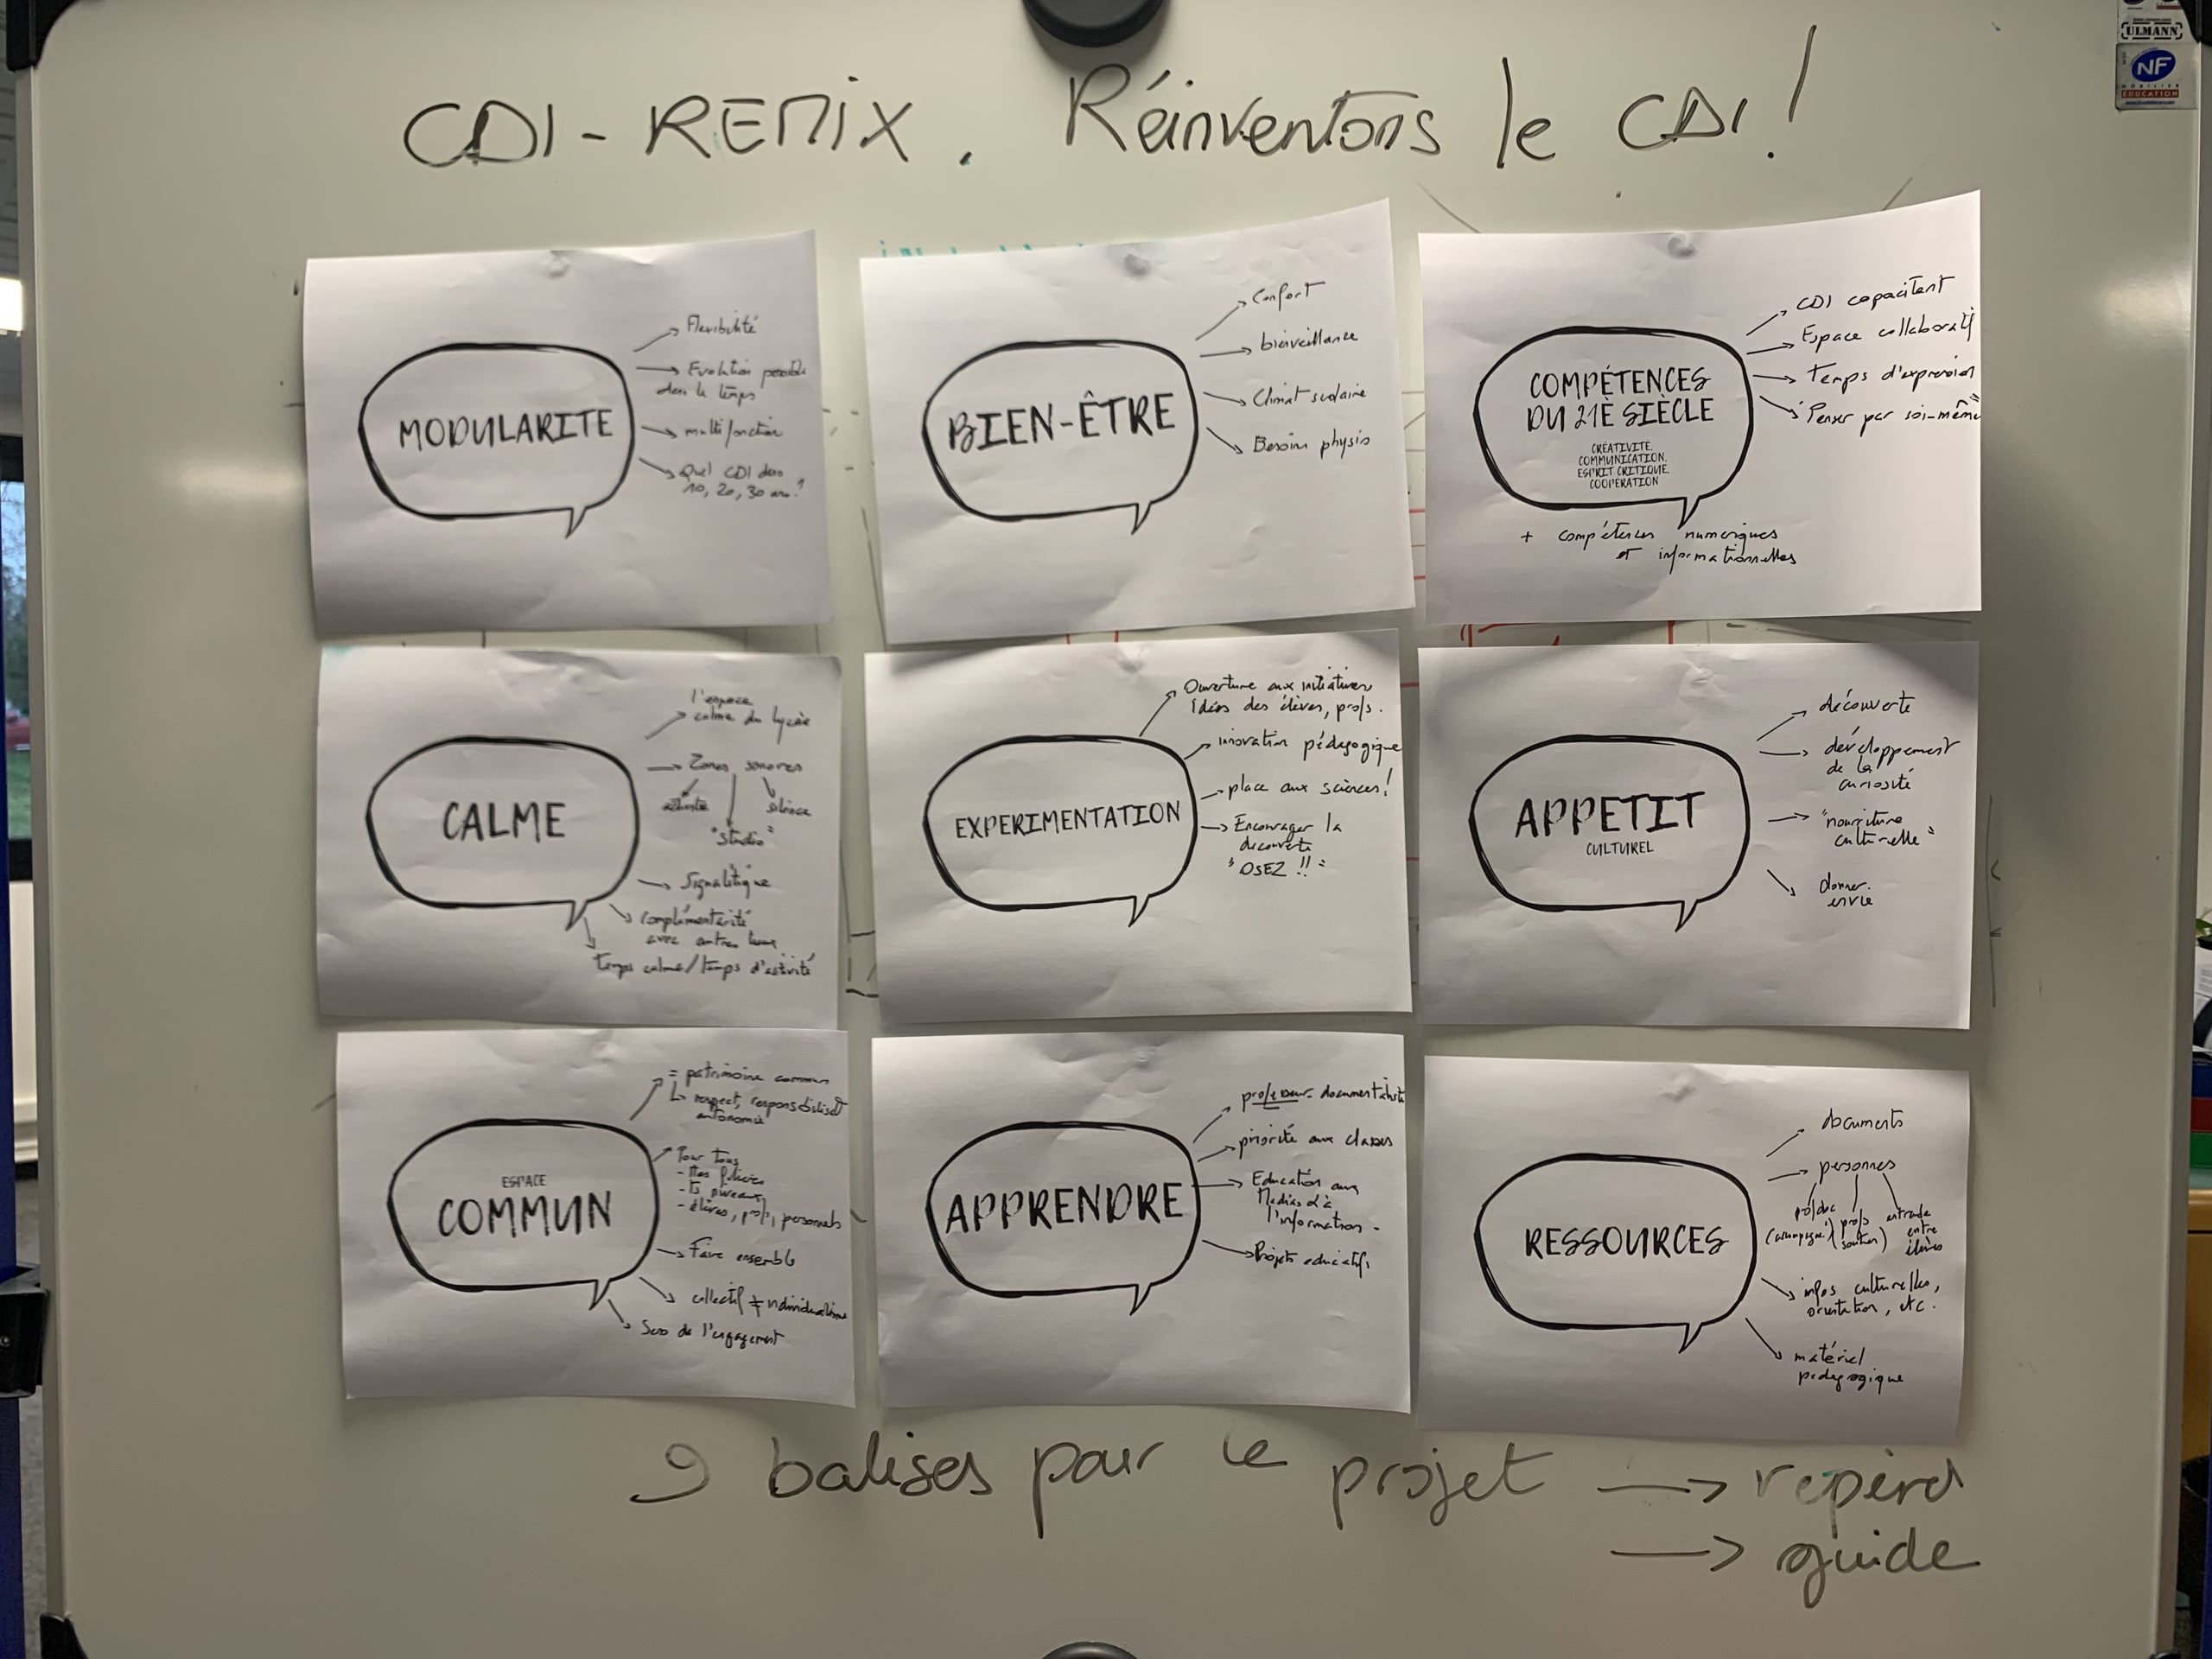 CDI-REMIX. Réinventons le CDI!
ULMANN
NF
MOBILIER
EDUCATION
MODULARITE
Flexibilité
Evolution possible
dans le temps
multifonction
Quel CDI dans
10, 20, 30 ans?
BIEN-ÊTRE
Confort
bienveillance
Climat scolaire
Besoin physio
COMPÉTENCES
DU 21È SIÈCLE
CRÉATIVITÉ,
COMMUNICATION,
ESPRIT CRITIQUE,
COOPERATION
CDI capacitant
Espace collaboratif
Temps d'expression
Penser par soi-même
+ compétences numériques
et informationnelles
CALME
l'espace
calme du lycée
Zones sonores
activité
silence
"studio"
Signalétique
complémentarité
avec autres lieux
Temps calme/temps d'activité
EXPERIMENTATION
Ouverture aux initiatives
Idées des élèves, profs.
inovation pédagogique
place aux sciences!
Encourager la
découverte
"OSEZ !!"
APPETIT
CULTUREL
découverte
développement
de la
curiosité
"nourriture
culturelle"
donner
envie
ESPACE
COMMUN
= patrimoine commun
↳ respect, responsabilisat°
autonomie
Pour tous
- ts niveaux
- élèves, profs, personnels
Faire ensemble
collectif ≠ individualisme
Sens de l'engagement
APPRENDRE
professeur-documentaliste
priorité aux classes
Education aux
Medias & à
l'information -
Projets educatifs
RESSOURCES
documents
personnes
prof/doc
(accompagne)
profs
(soutien)
entraide
entre
élèves
infos culturelles,
orientation, etc.
matériel
pédagogique
9 balises pour le projet → repères
→ guide